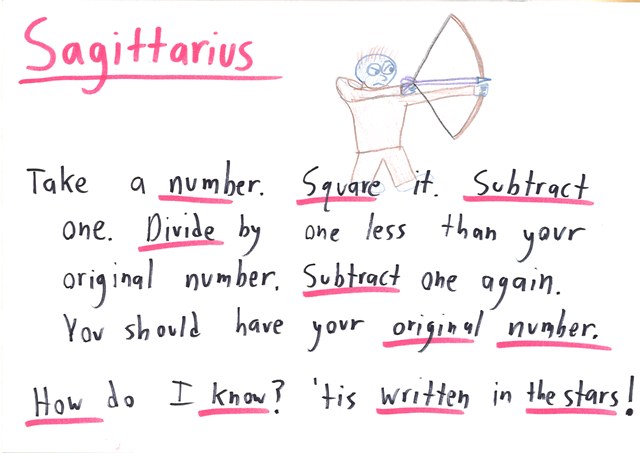 Sagittarius
Take a number. Square it. Subtract
one. Divide by one less than your
original number. Subtract one again.
You should have your original number.
How do I know? 'tis written in the stars!